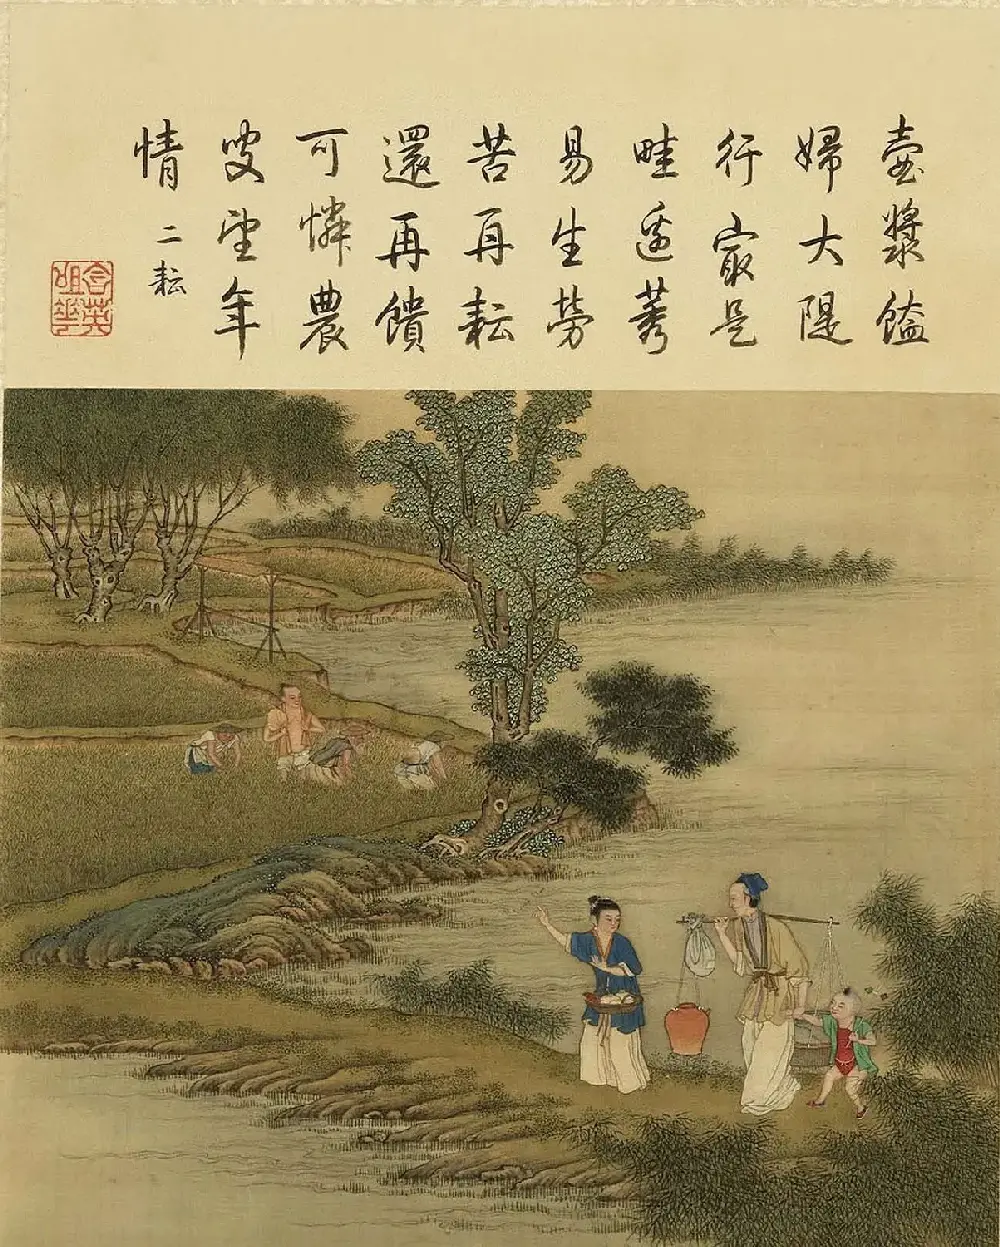 壺漿饁
婦大隄
行㝡是
畦邊莠
易生勞
苦再耘
還再饋
可憐農
叟望年
情
二耘
含英咀華